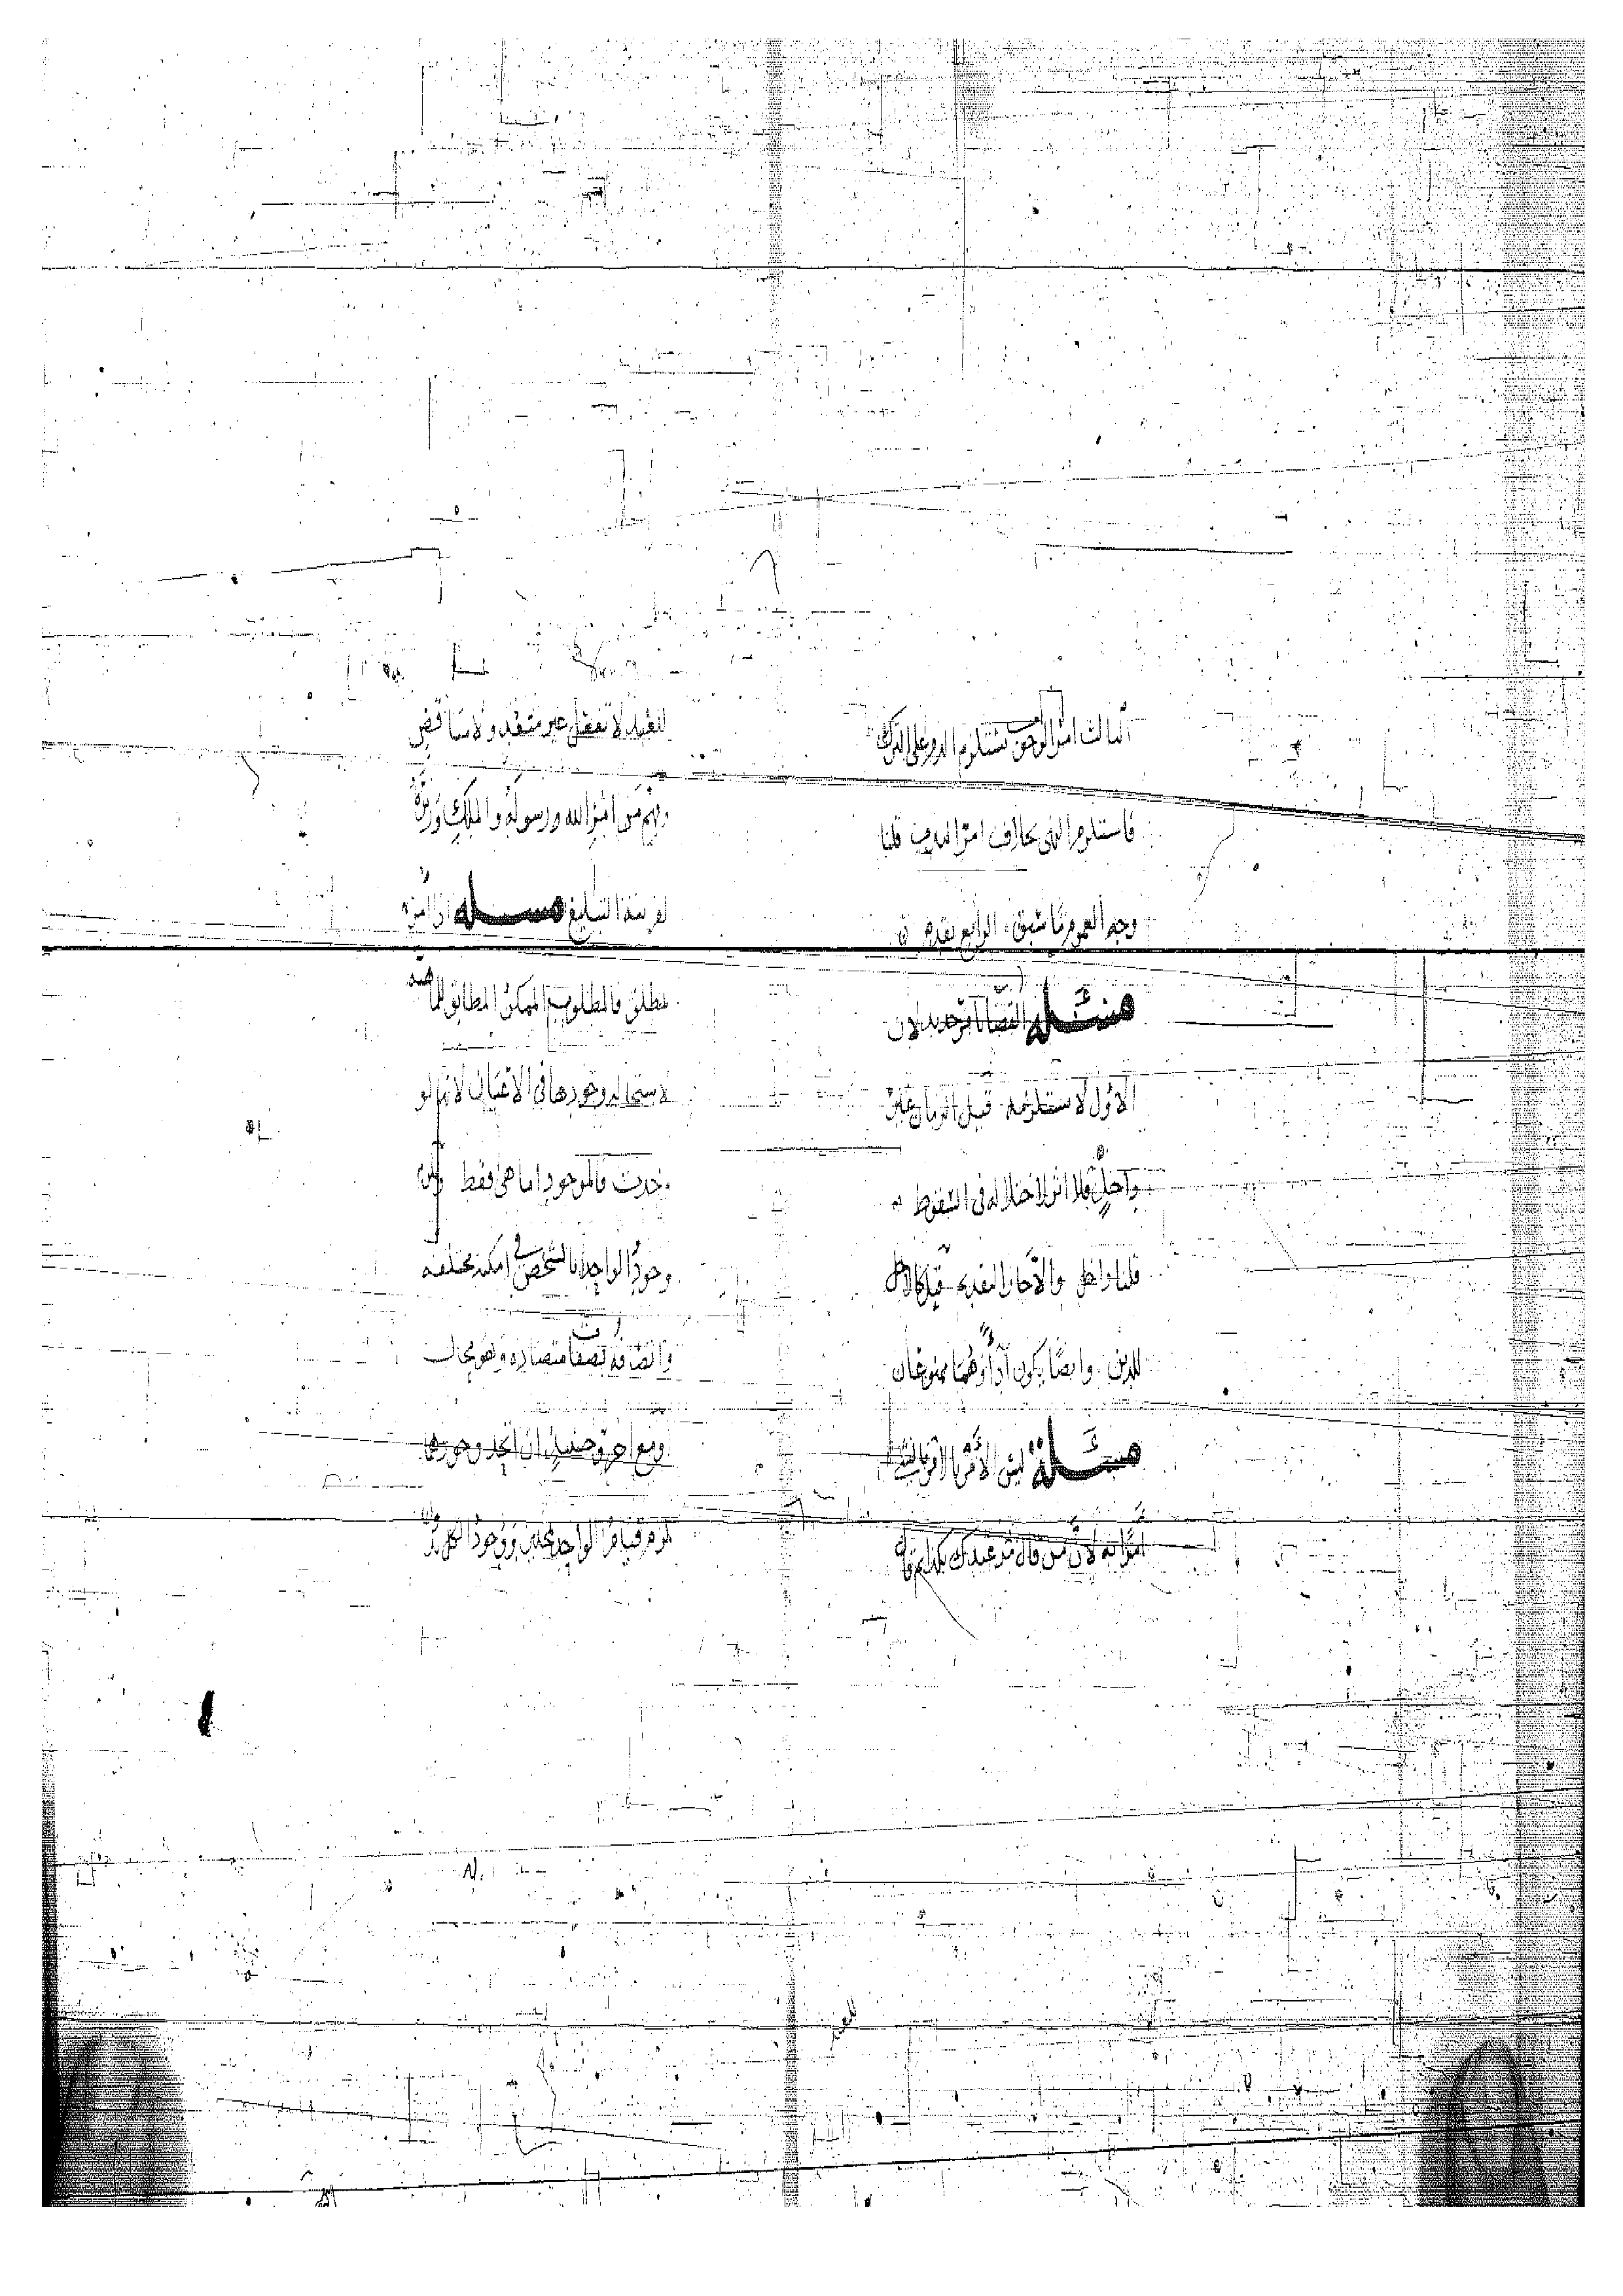 الثالث امر الوجوب يستلزم الدم على الترك
فاستلزم النهي بخلاف امر الندب قلنا
وجه العموم ما سبق الرابع تقدم
مسئلة القضا بامر جديد لان
الاول لا يستلزمه قيل الزمان غير
داخل فلا اثر لاختلاله في السقوط
قلنا داخل والا جاز التقديم قيل كالاجل
للدين وايضا يكون اداؤهما ممنوعان
مسئلة ليس الامر بالامر بالشي
امرا به لان من قال مر عبدك بكذا ثم قال
للعبد لا تفعل غير متعد ولا مناقض
وفهم من امر الله ورسوله والملك وزيره
لقرينة التبليغ مسله اذا امر
بمطلق فالمطلوب الممكن المطابق للماهية
لاستحالة وجودها في الاعيان لانها لو
وجدت فالموجود اما هي فقط
وجود الواحد بالشخص في امكنة مختلفة
واتصافه بصفات متضادة وهو محال
ومع اخرى حينئذ ان اتحد وجودها
لزم قيام الواحد بمحلين ووجود الكل